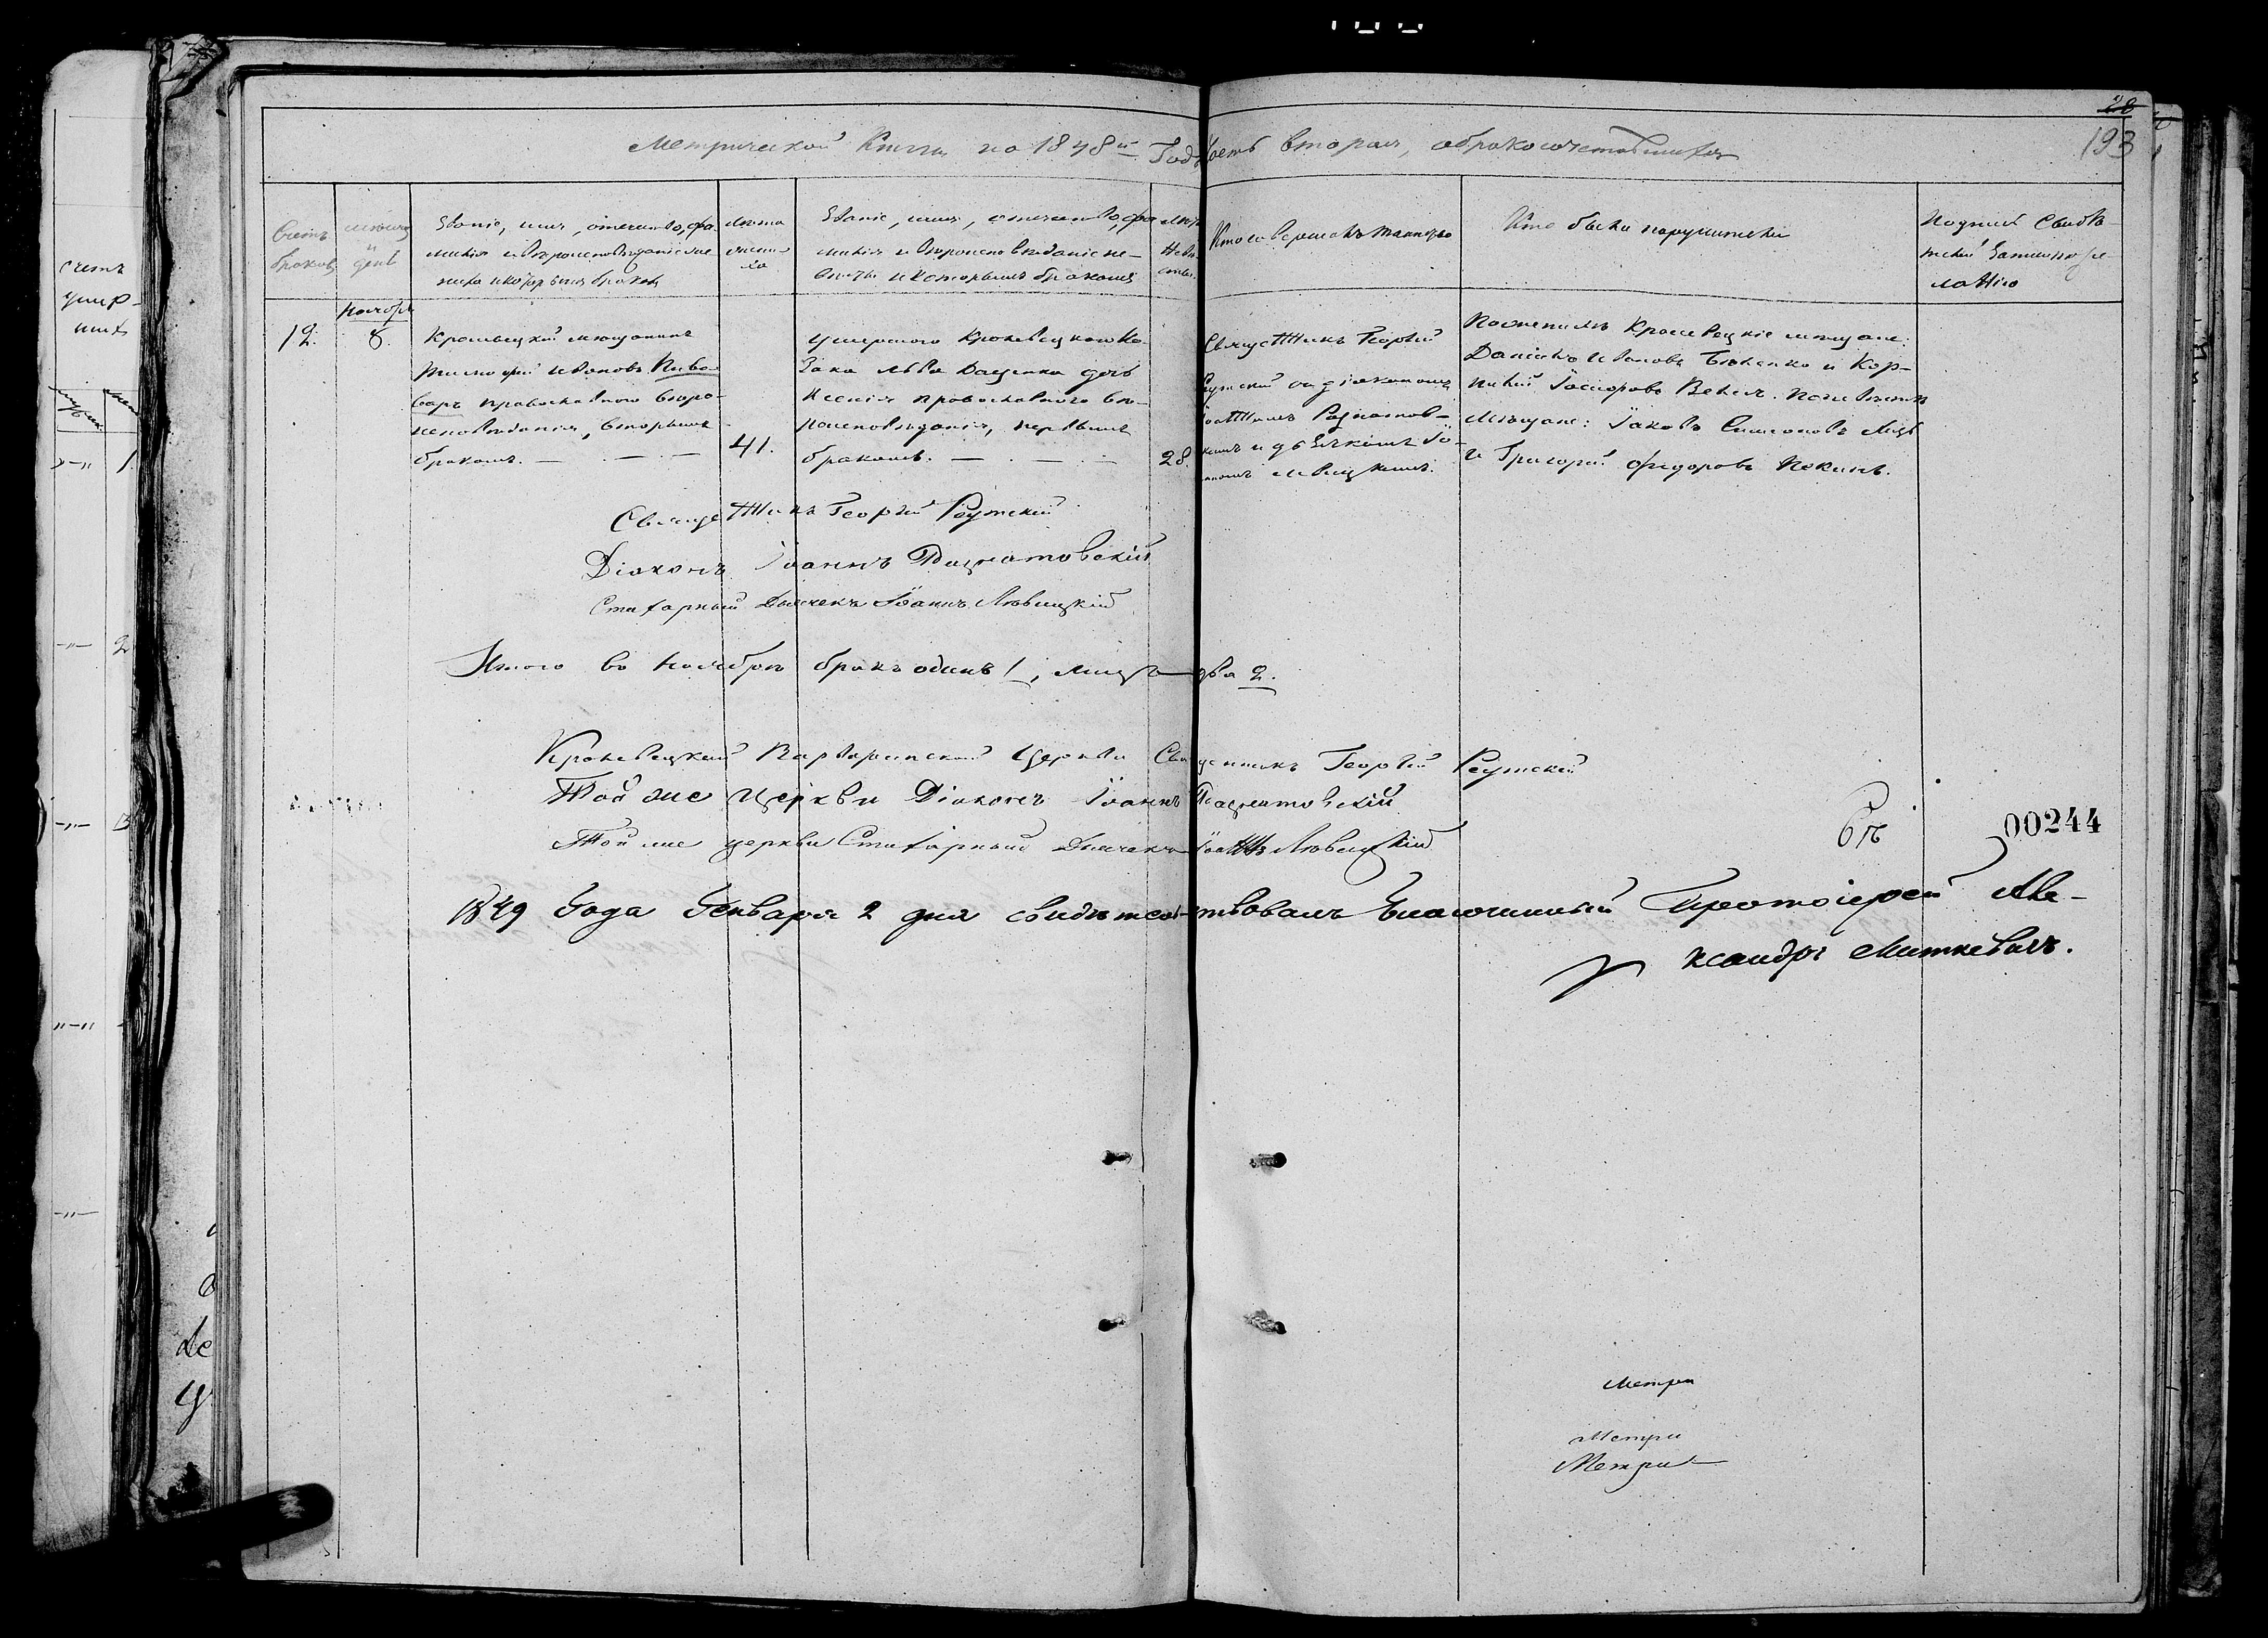 28
193
Метрической Книги на 1848й Годъ Часть вторая, о бракосочетавшихся
Счетъ
браковъ
мѣсяцъ
и
день
Званіе, имя, отечество, фа-
милія и вѣроисповѣданіе же-
ниха и которымъ бракомъ
Лѣта
жени-
ха
Званіе, имя, отечество, фа-
милія и вѣроисповѣданіе не-
вѣсты и которымъ бракомъ
Лѣта
Невѣ-
сты
Кто совершалъ таинство
Кто были поручители
Подпись Свидѣ-
телей Записи по же-
ланію
Ноября
12.
8.
Кролевецкій мѣщанинъ
Тимофей Ивановъ Пиво-
варъ православного вѣро-
исповѣданія, вторымъ
бракомъ.
41.
умершого Кролевецкого Ко-
зака Льва дочь
Ксенія православного вѣ-
роисповѣданія, первымъ
бракомъ.
28.
Священникъ Георгій
Рутскій съ діакономъ
Іоанномъ
и дьячкомъ Іо-
анномъ
По женихѣ Кролевецкіе мѣщане:
Даніилъ Ивановъ и Кор-
нилій По невѣстѣ
мѣщане: Іаковъ Симоновъ
и Григорій Федоровъ
Священникъ Георгій Рутскій
Діаконъ Іоаннъ
Стихарный Дьячекъ Іоаннъ Львицкій
Итого въ Ноябрѣ бракъ одинъ 1, лицъ два 2.
Кролевецкой Варваринской Церкви Священникъ Георгій Рутскій
Той же Церкви Діаконъ Іоаннъ
Той же церкви Стихарный Дьячекъ Іоаннъ Львицкій
00244
1849 Года Генваря 2 дня свидѣтельствовалъ Благочинный Протоіерей Але-
ксандръ Миткевичъ.
Метри
Метри
Метри
счетъ
умер-
шихъ
1.
2